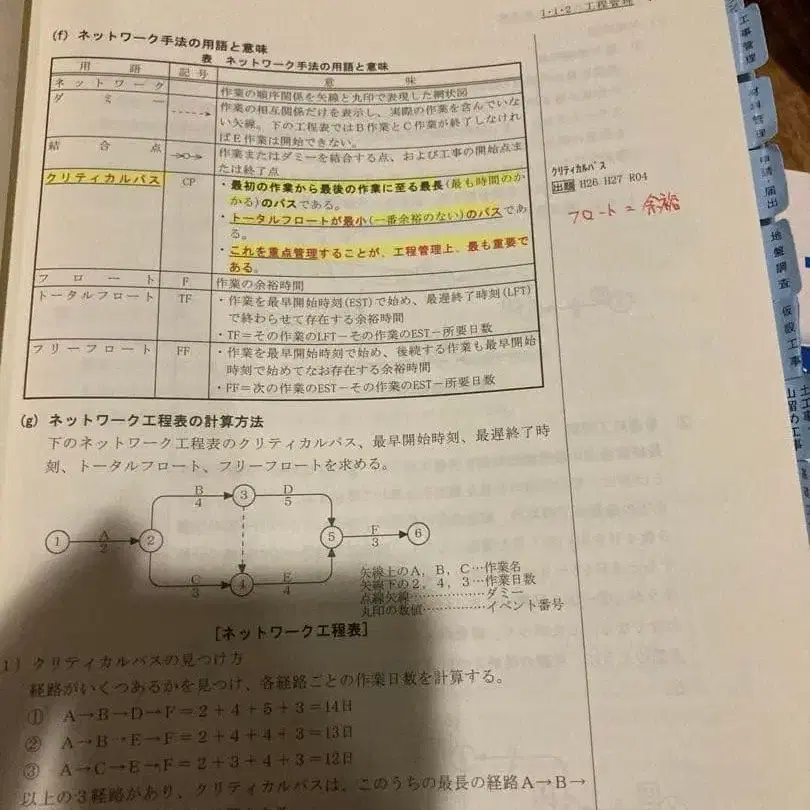 1・1・2 工程管理
(f) ネットワーク手法の用語と意味
表 ネットワーク手法の用語と意味
用語 記号 意味
ネットワーク 作業の順序関係を矢線と丸印で表現した網状図
ダミー 作業の相互関係だけを表示し、実際の作業を含んでいな
い矢線。下の工程表ではB作業とC作業が終了しなけれ
ばE作業は開始できない。
結合点 作業またはダミーを結合する点、および工事の開始点ま
たは終了点
クリティカルパス CP ・最初の作業から最後の作業に至る最長(最も時間のか
かる)のパスである。
・トータルフロートが最小(一番余裕のない)のパスであ
る。
・これを重点管理することが、工程管理上、最も重要で
ある。
フロート F 作業の余裕時間
トータルフロート TF ・作業を最早開始時刻(EST)で始め、最遅終了時刻(LFT)
で終わらせて存在する余裕時間
・TF=その作業のLFT-その作業のEST-所要日数
フリーフロート FF ・作業を最早開始時刻で始め、後続する作業も最早開始
時刻で始めてなお存在する余裕時間
・FF=次の作業のEST-その作業のEST-所要日数
クリティカルパス
出題 H26 H27 R04
フロート = 余裕
(g) ネットワーク工程表の計算方法
下のネットワーク工程表のクリティカルパス、最早開始時刻、最遅終了時
刻、トータルフロート、フリーフロートを求める。
B 3 D
4 5
1 A 2 5 F 6
2 3
C 4 E
3 4
矢線上のA, B, C…作業名
矢線下の2, 4, 3…作業日数
点線矢線……………ダミー
丸印の数値…………イベント番号
[ネットワーク工程表]
1) クリティカルパスの見つけ方
経路がいくつあるかを見つけ、各経路ごとの作業日数を計算する。
① A→B→D→F=2+4+5+3=14日
② A→B→E→F=2+4+4+3=13日
③ A→C→E→F=2+3+4+3=12日
以上の3経路があり、クリティカルパスは、このうちの最長の経路A→B→
工事管理
材料管理
申請・届出
地盤調査
仮設工事
土工事
山留め工事